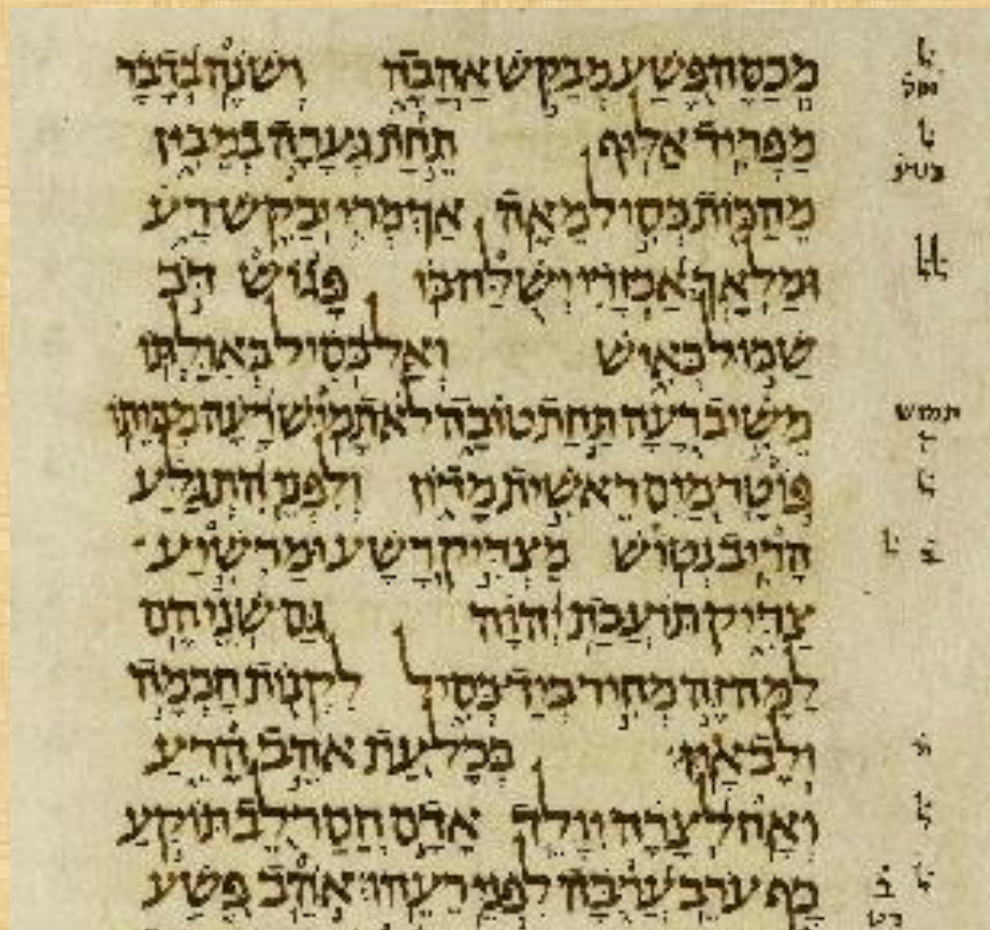 מְכַסֶּה פֶּשַׁע מְבַקֵּשׁ אַהֲבָה וְשֹׁנֶה בְדָבָר ל
מַפְרִיד אַלּוּף תֵּחַת גְּעָרָה בְמֵבִין ל
מֵהַכּוֹת כְּסִיל מֵאָה אַךְ מְרִי יְבַקֶּשׁ רָע
וּמַלְאָךְ אַכְזָרִי יְשֻׁלַּח בּוֹ פָּגוֹשׁ דֹּב ל ל
שַׁכּוּל בְּאִישׁ וְאַל כְּסִיל בְּאִוַּלְתּוֹ
מֵשִׁיב רָעָה תַּחַת טוֹבָה לֹא תָמִישׁ רָעָה מִבֵּיתוֹ תמוש ק
פּוֹטֵר מַיִם רֵאשִׁית מָדוֹן וְלִפְנֵי הִתְגַּלַּע ל
הָרִיב נְטוֹשׁ מַצְדִּיק רָשָׁע וּמַרְשִׁיעַ ב ל
צַדִּיק תּוֹעֲבַת יְהוָה גַּם שְׁנֵיהֶם
לָמָּה זֶּה מְחִיר בְּיַד כְּסִיל לִקְנוֹת חָכְמָה
וְלֶב אָיִן בְּכָל עֵת אֹהֵב הָרֵעַ
וְאָח לְצָרָה יִוָּלֵד אָדָם חֲסַר לֵב תּוֹקֵעַ ל
כָּף עֹרֵב עֲרֻבָּה לִפְנֵי רֵעֵהוּ אֹהֵב פֶּשַׁע ל ב